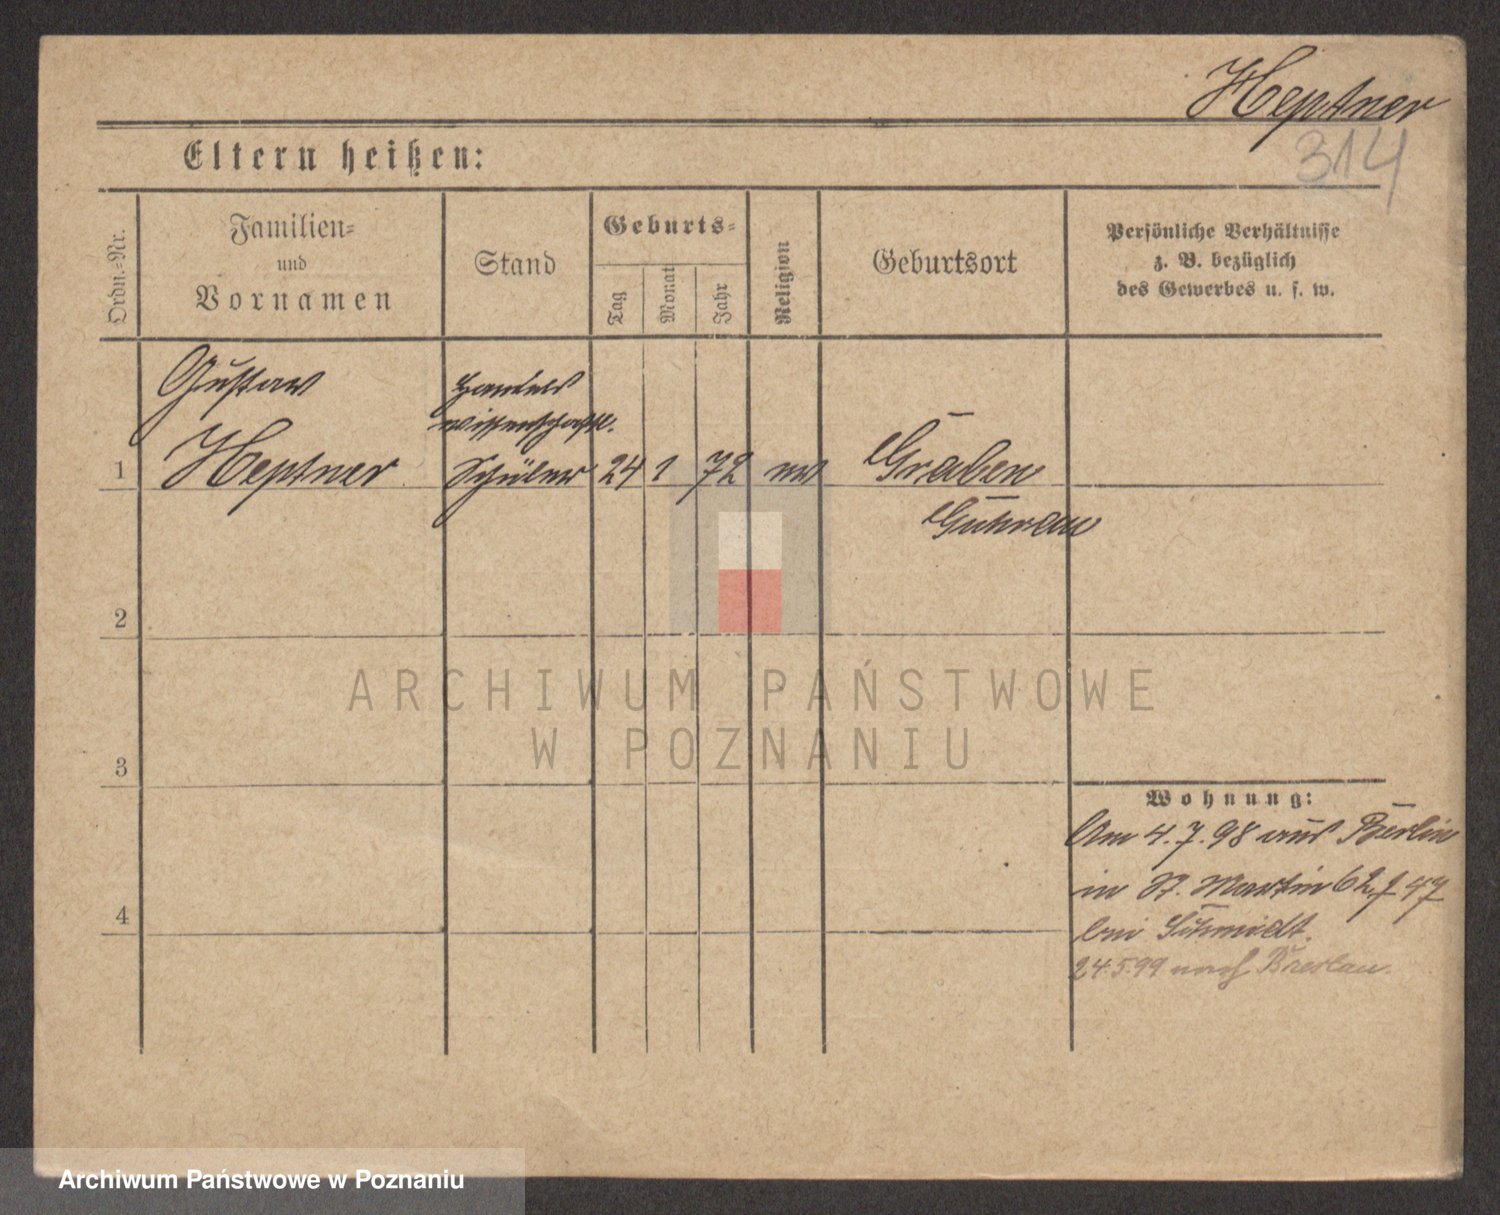 Heptner
314
Eltern heißen:
Ordn.-Nr.
Familien-
und
Vornamen
Stand
Geburts-
Tag
Monat
Jahr
Religion
Geburtsort
Persönliche Verhältnisse
z. B. bezüglich
des Gewerbes u. s. w.
Gustav
Handels
wissenschaftl.
1 Heptner Schüler 24 1 72 ev Graben
Guhrau
2
3
4
Wohnung:
Am 4.7.98 aus Berlin
in St. Martin 62
bei Schmidt.
24.5.99 nach Breslau.
ARCHIWUM PAŃSTWOWE
W POZNANIU
Archiwum Państwowe w Poznaniu